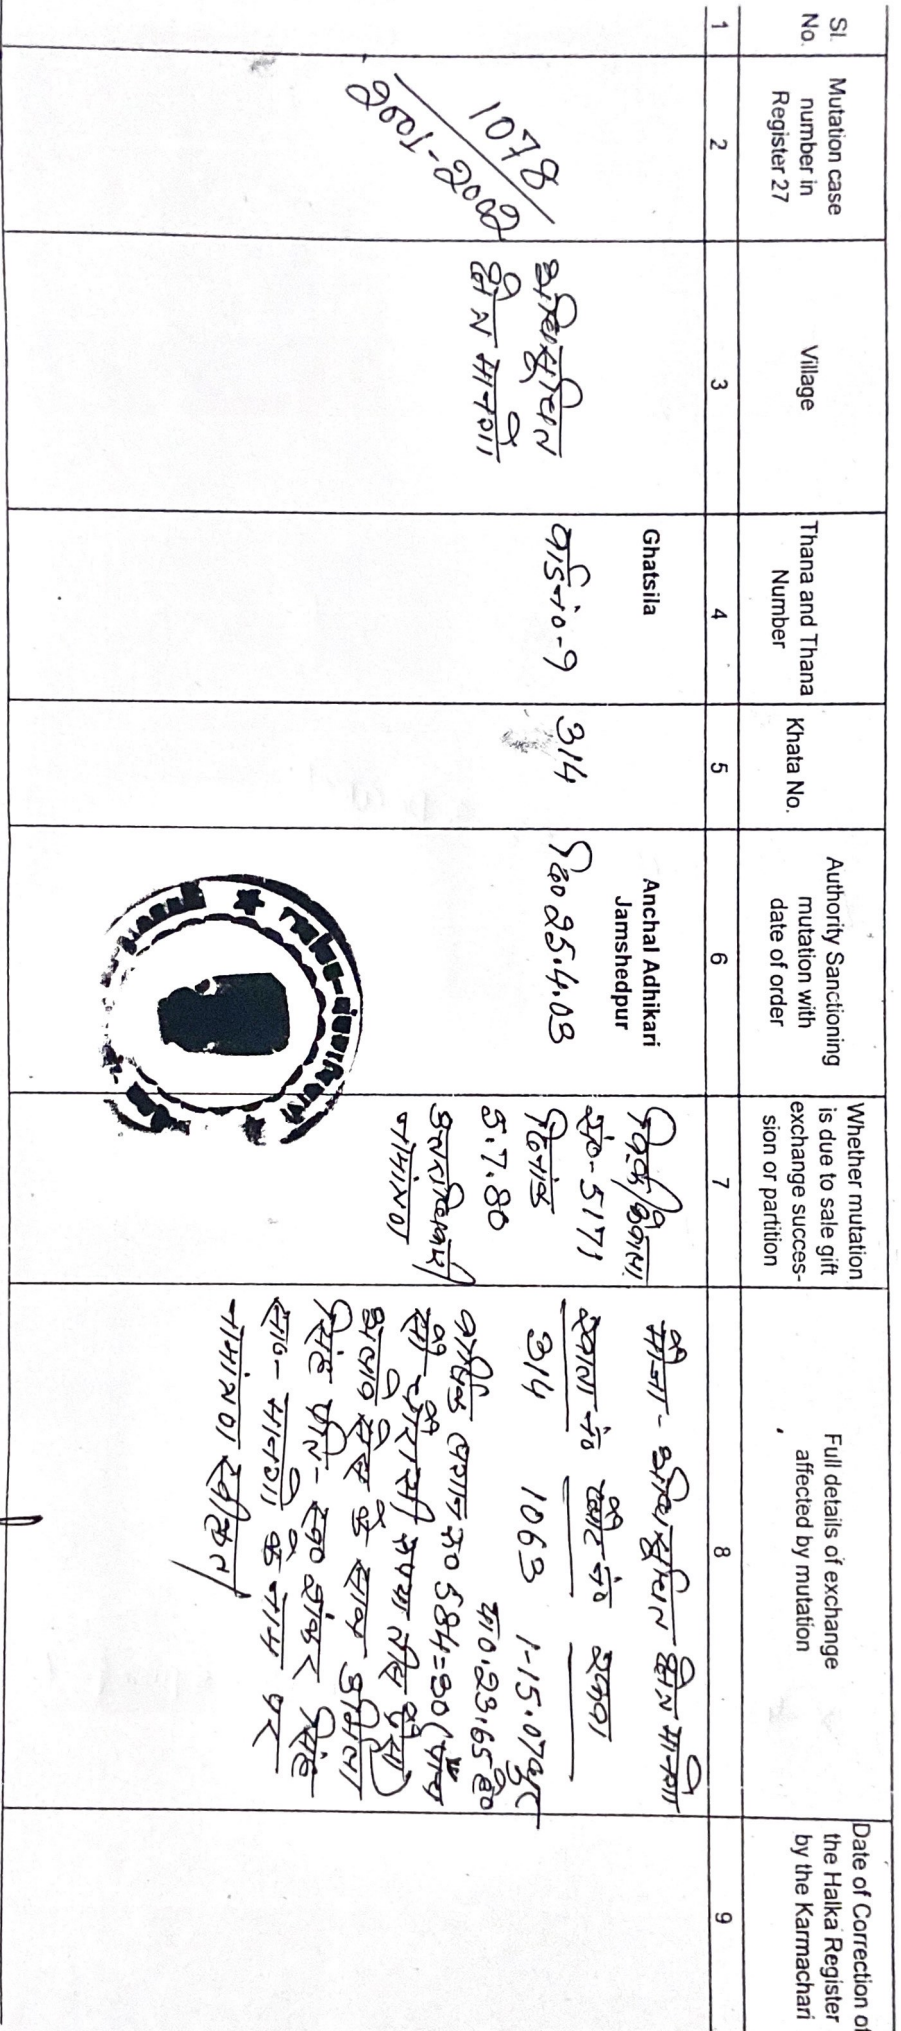 Sl.
No.
Mutation case
number in
Register 27
Village
Thana and Thana
Number
Khata No.
Authority Sanctioning
mutation with
date of order
Whether mutation
is due to sale gift
exchange succes-
sion or partition
Full details of exchange
affected by mutation
Date of Correction of
the Halka Register
by the Karmachari
1
2
3
4
5
6
7
8
9
1078
2001-2002
अधिसूचित
क्षेत्र मानगो
Ghatsila
वार्ड नं०-9
314
Anchal Adhikari
Jamshedpur
दि० 25.4.03
सं०-5171
दिनांक
5.7.80
नामांतरण
मौजा- अधिसूचित क्षेत्र मानगो
खाता नं० प्लॉट नं० रकवा
314 1063 1-15.0
23.65 हे०
वार्षिक लगान 584=30 (पांच
सौ चौरासी रुपया तीस पैसा)
अलावे सेस के साथ उर्मिला
सिंह पति- स्व० शंकर सिंह
सा०- मानगो के नाम पर
नामांतरण स्वीकृत